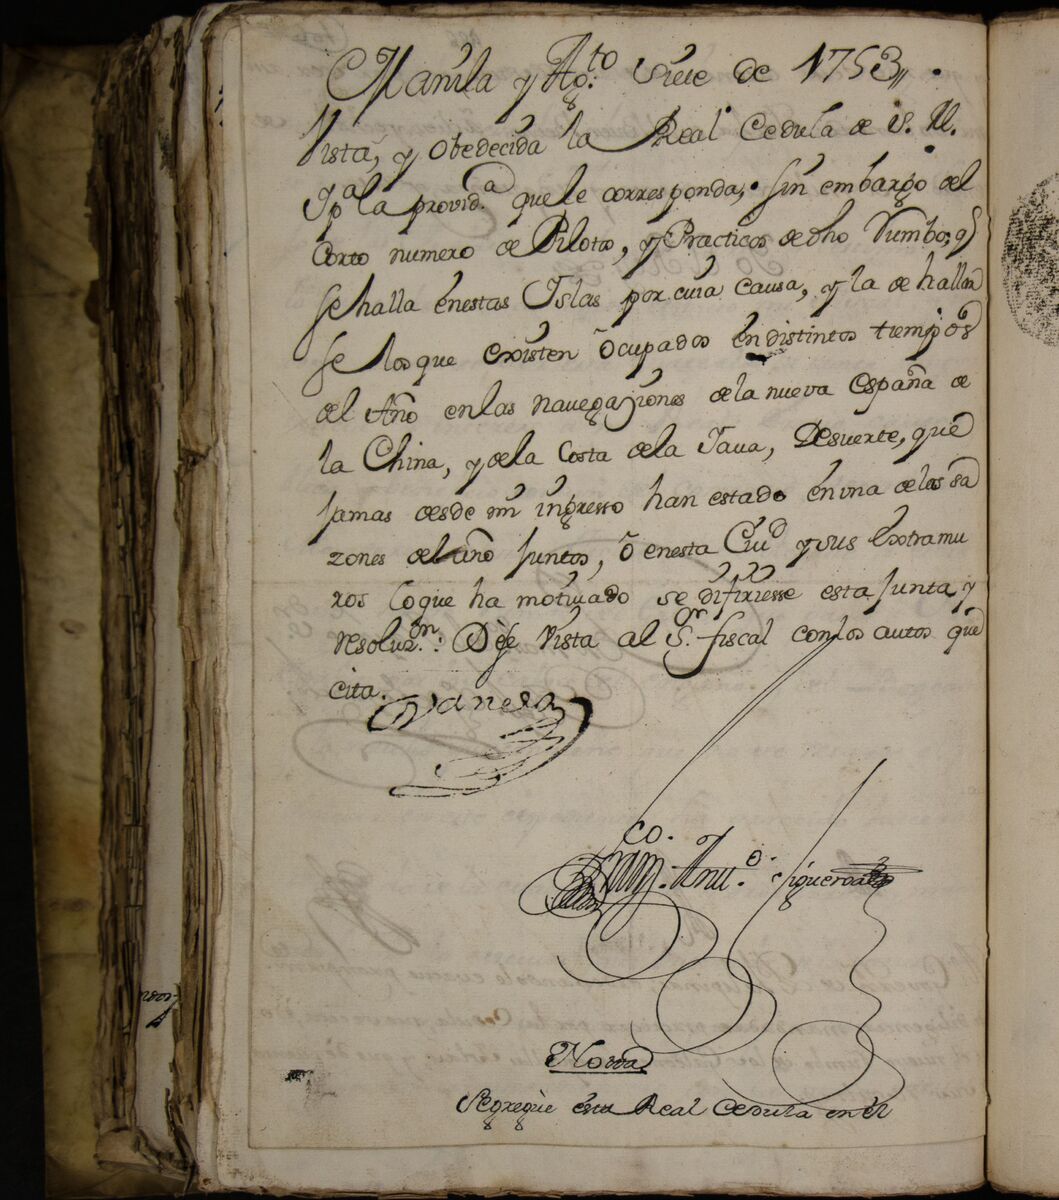 Manila y Ag.to siete de 1753,,.
Vista, y obedecida la Real Cedula de S. M.
Yp.a la provid.a que le corresponda, sin embargo del
Corto numero de Pilotos, y Practicos de dho Rumbo, q
se halla enestas Islas por cuia causa, y la de hallar
se los que existen ocupados en distintos tiempos
del Año en las navegaziones dela nueva españa de
la China, y dela Costa dela Java, Desuerte, que
jamas desde mi ingresso han estado en una delas sa
zones del año juntos, ô enesta Ciud y sus Extramu
ros loque ha motivado se difiriesse esta Junta y
resoluz.on: Dése Vista al S.or fiscal conlos autos que
cita.
Fran.co Ant.o Figueroa
Notta
Segregùe esta Real Cedula en el